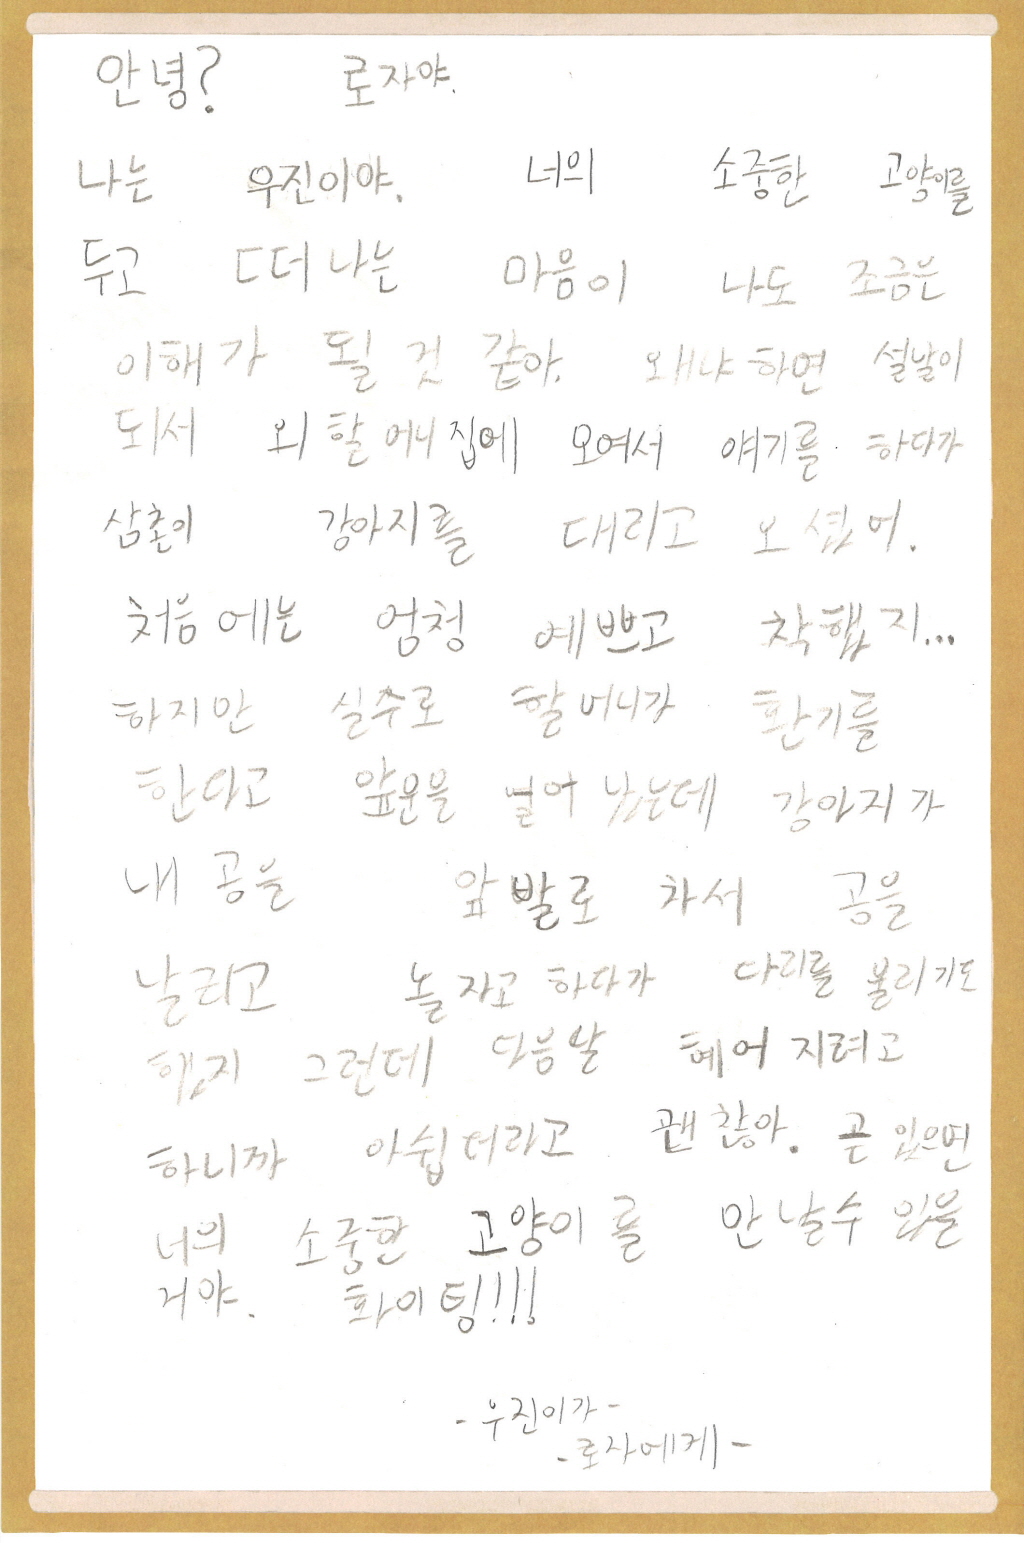 안녕? 로자야.
나는 우진이야. 너의 소중한 고양이를
두고 떠나는 마음이 나도 조금은
이해가 될 것 같아. 왜냐하면 설날이
되서 외할머니집에 모여서 얘기를 하다가
삼촌이 강아지를 대리고 오셨어.
처음에는 엄청 예쁘고 착했지...
하지만 실수로 할머니가 환기를
한다고 앞문을 열어 놨는데 강아지가
내 공을 앞발로 차서 공을
날리고 놀자고 하다가 다리를 불리기도
했지 그런데 다음날 헤어지려고
하니까 아쉽더라고 괜찮아. 곧 있으면
너의 소중한 고양이를 만날수 있을
거야. 화이팅!!!
-우진이가-
-로자에게-